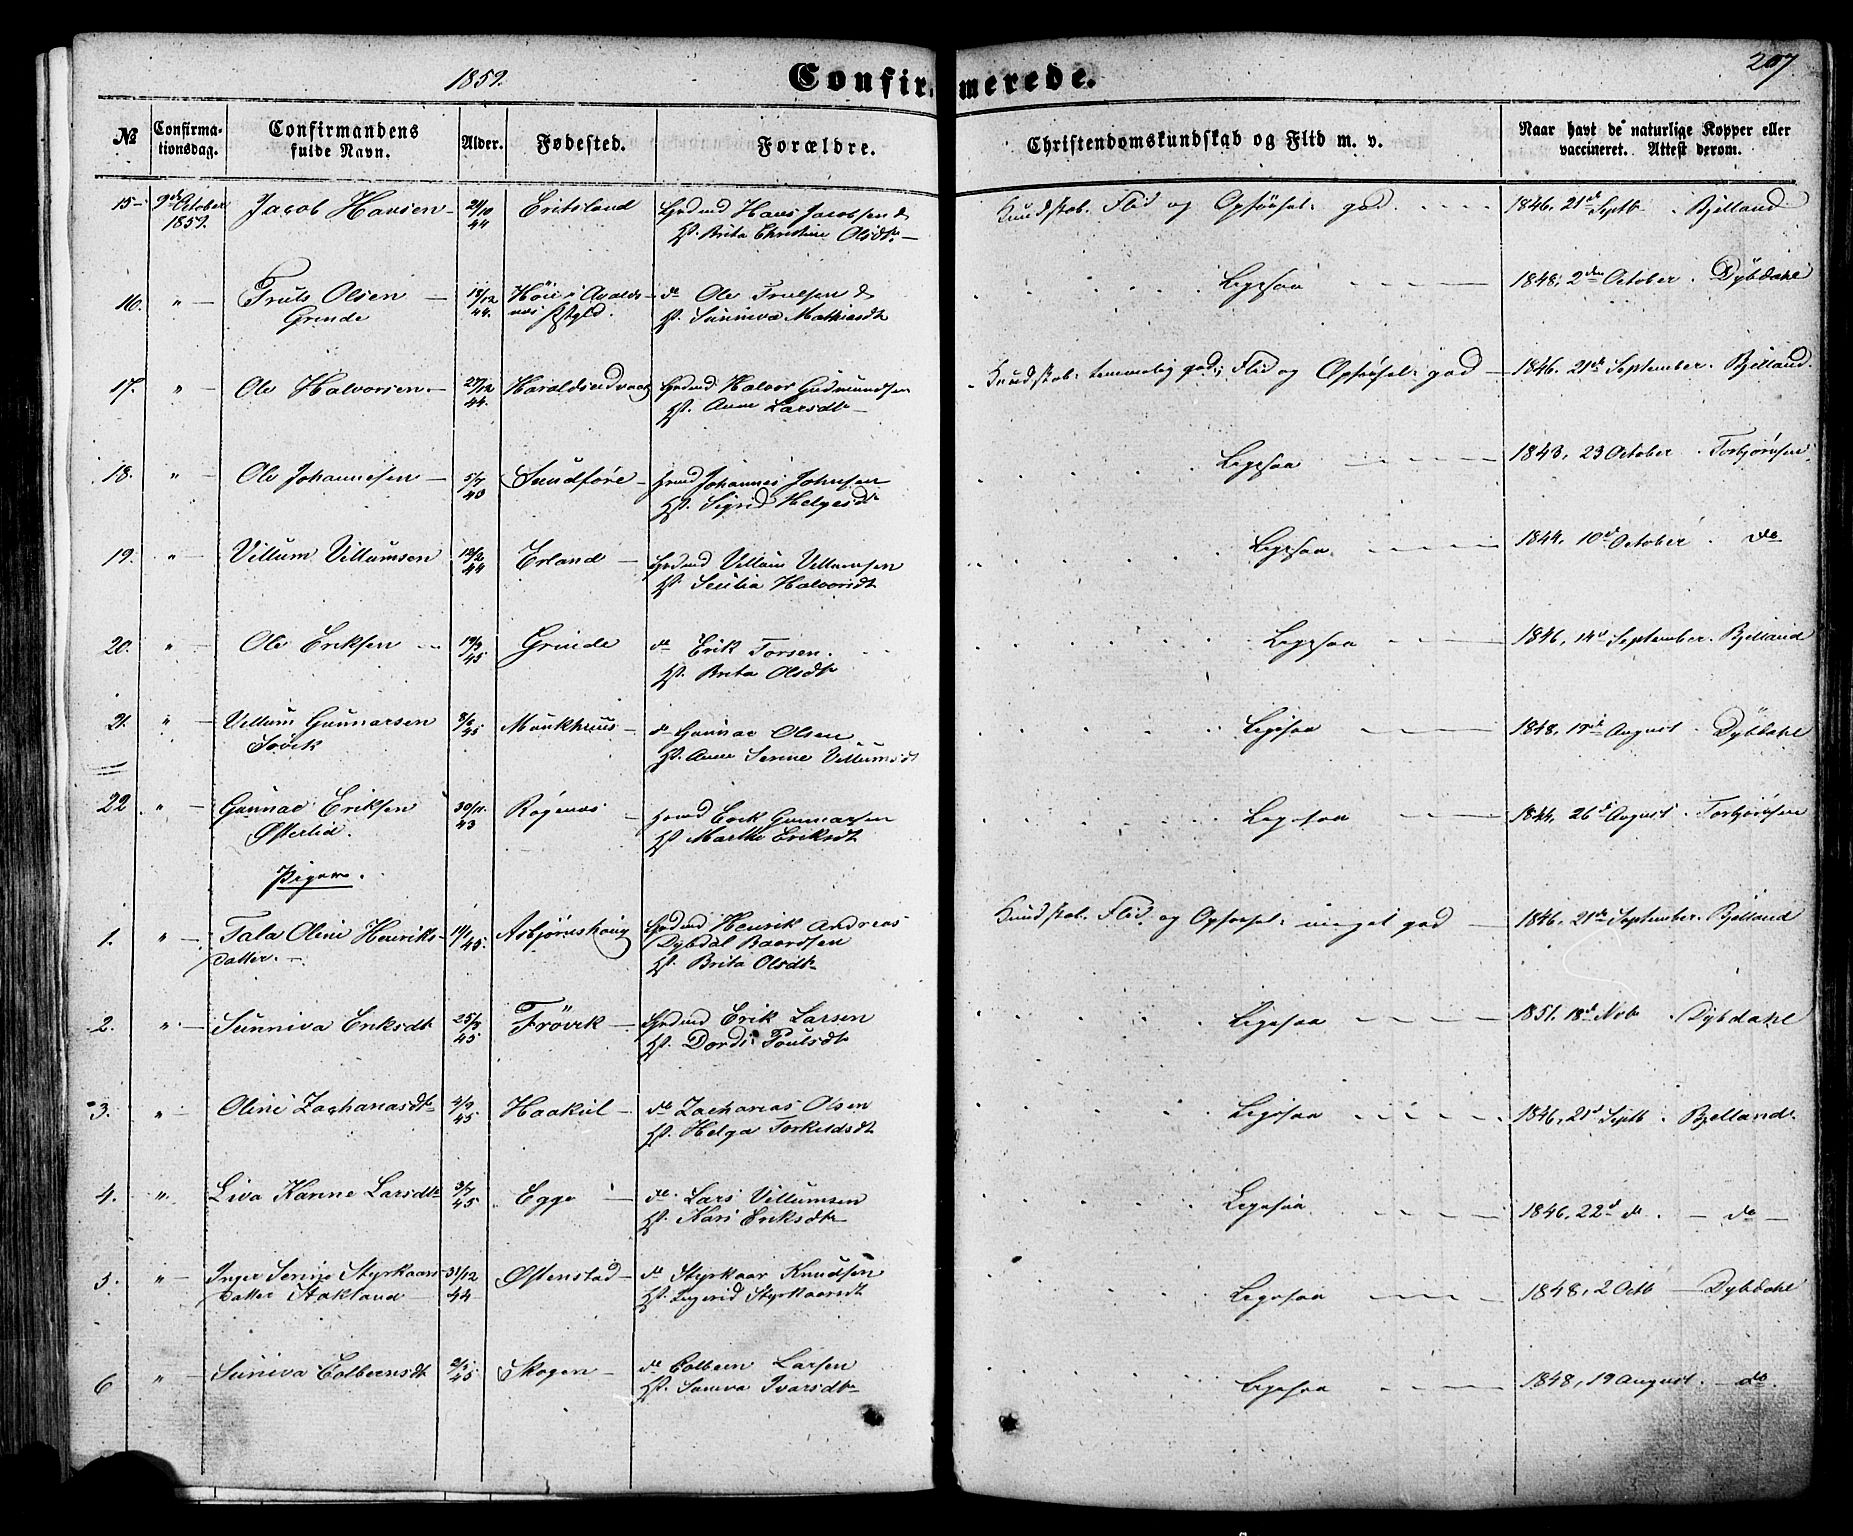 207
1859. Confirmerede.
№ Confirma-tionsdag. Confirmandens fulde Navn. Alder. Fødested. Forældre. Christendomskundskab og Flid m. v. Naar havt de naturlige Kopper eller vaccineret. Attest derom.
15 9de October 1859. Jacob Hansen 44 Eritsland Hans Jacobsen & H. Brita Christine Olsdtr Kundskab, Flid og Opførsel god 1846, 21d Septb. Bjelland
16. " Truls Olsen Grinde 18/12 44. Høie i Avalds- do Ole Trulsen & H. Sunniva Mathiasdt Ligesaa 1848, 2den October. Dybdahl
17. " Ole Halvorsen 27/12 44. Haraldseidvaag Halvor Gudmundsen H. Anne Larsdtr Kundskab temmelig god; Flid og Opførsel god 1846. 21de September. Bjelland.
18. " Ole Johannesen 5/7 43 Sundføre Johannes Johnsen H. Sigrid Helgesdtr Ligesaa 1843, 23 October. Torbjørnsen
19. " Villum Villumsen 12/2 44 Erland Villum Villumsen H. Secilia Halvorsdt Ligesaa. 1844. 10d October. do
20. " Ole Eriksen 19/3 45 Grinde do Erik Torsen. H. Brita Olsdtr Ligesaa 1846, 14d September. Bjelland
21. " Villum Gunnarsen 45 do Gunnar Olsen H. Anne Serine Villumsdt Ligesaa 1848, 19de August. Dybdahl
22 " Gunnar Eriksen Østerlid. 30/11. 43 Røgenæs Erik Gunnarsen H. Marthe Eriksdt Ligesaa 1844, 26d August. Torbjørnsen
Piger.
1. " Tala Oline Henriks-datter. 45. Asbjørnshoug Henrik Andreas Dybdal Baardsen H. Brita Olsdtr Kundskab. Flid og Opførsel meget god 1846. 21de September. Bjelland
2. " Sunniva Eriksdt 25/3 45 Frøvik Erik Larsen H. Dordi Poulsdtr Ligesaa 1851. 18d Novb. Dybdahl
3. " Oline Zachariasdtr 2/9 45 Haakul do Zacharias Olsen H. Helga Torkildsdt Ligesaa 1846, 21d Septb. Bjelland.
4. " Liva Karine Larsdtr 3/7 45 Egge do. Lars Villumsen H. Kari Eriksdtr Ligesaa 1846, 22d do. do
5. " Inger Serine Styrkaars-datter Stakland 31/12 44 Østenstad do Styrkaar Knudsen H. Ingerid Styrkaarsdt Ligesaa 1848, 2 Octb Dybdahl
6 " Suniva Colbeensdt 45 Skogen do Colbeen Larsen H. Ivarsdtr Ligesaa 1848, 19 August. do.